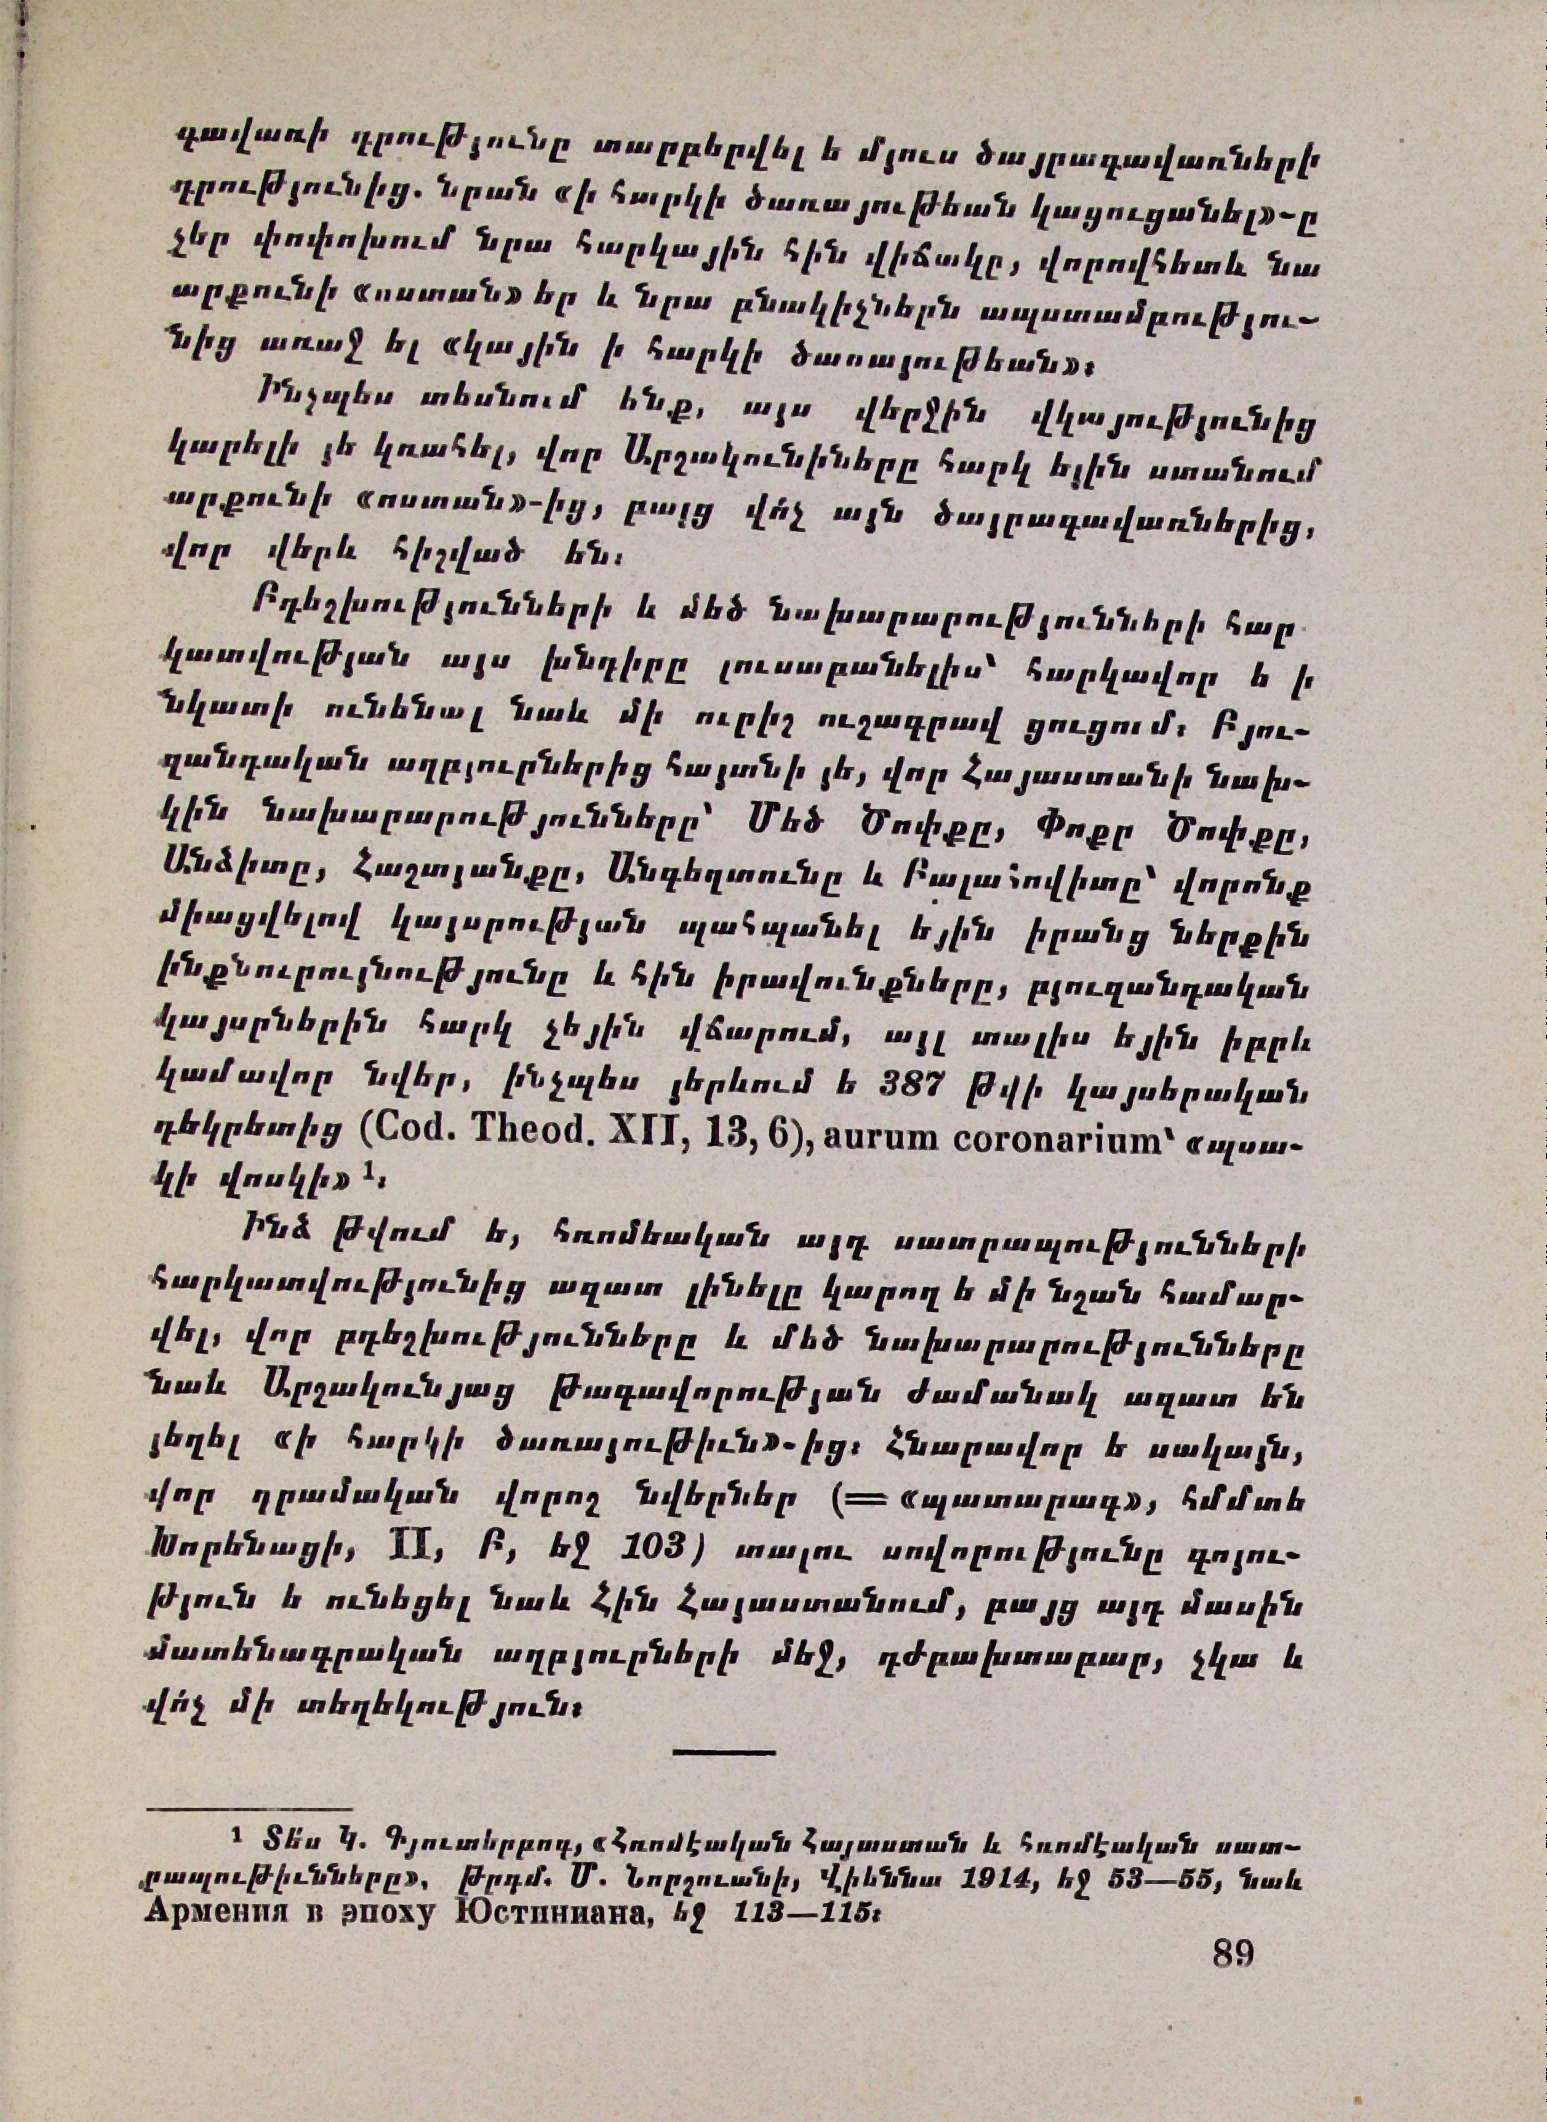 գավառի դրությունը տարբերվել ե մյուս ծայրագավառների
դրությունից. նրան «ի հարկի ծառայութեան կացուցանել»-ը
չեր փոփոխում նրա հարկային հին վիճակը, վորովհետև նա
արքունի «ոստան» եր և նրա բնակիչներն ապստամբությու-
նից առաջ ել «կային ի հարկի ծառայութեան»։
Ինչպես տեսնում ենք, այս վերջին վկայությունից
կարելի յե կռահել, վոր Արշակունիները հարկ եյին ստանում
արքունի «ոստան»-ից, բայց վո՛չ այն ծայրագավառներից,
վոր վերև հիշված են։
Բդեշխությունների և մեծ նախարարությունների հար
կատվության այս խնդիրը լուսաբանելիս՝ հարկավոր ե ի
նկատի ունենալ նաև մի ուրիշ ուշագրավ ցուցում։ Բյու-
զանդական աղբյուրներից հայտնի յե, վոր Հայաստանի նախ-
կին նախարարությունները՝ Մեծ Ծոփքը, Փոքր Ծոփքը,
Անձիտը, Հաշտյանքը, Անգեղտունը և Բալահովիտը՝ վորոնք
միացվելով կայսրության պահպանել եյին իրանց ներքին
ինքնուրույնությունը և հին իրավունքները, բյուզանդական
կայսրներին հարկ չեյին վճարում, այլ տալիս եյին իբրև
կամավոր նվեր, ինչպես յերևում ե 387 թվի կայսերական
դեկրետից (Cod. Theod. XII, 13, 6), aurum coronarium՝ «պսա-
կի վոսկի» ¹։
Ինձ թվում ե, հռոմեական այդ սատրապությունների
հարկատվությունից ազատ լինելը կարող ե մի նշան համար-
վել, վոր բդեշխությունները և մեծ նախարարությունները
նաև Արշակունյաց թագավորության ժամանակ ազատ են
յեղել «ի հարկի ծառայութիւն»-ից։ Հնարավոր ե սակայն,
վոր դրամական վորոշ նվերներ (= «պատարագ», հմմտե
Խորենացի, II, Բ, եջ 103) տալու սովորությունը գոյու-
թյուն ե ունեցել նաև Հին Հայաստանում, բայց այդ մասին
մատենագրական աղբյուրների մեջ, դժբախտաբար, չկա և
վո՛չ մի տեղեկություն։
¹ Տե՛ս Կ. Գյուտերբոգ, «Հռոմէական Հայաստան և հռոմէական սատ-
րապութիւնները», թրգմ. Մ. Նորշուանի, Վիեննա 1914, եջ 53—55, նաև
Армения в эпоху Юстиниана, եջ 113—115։
89